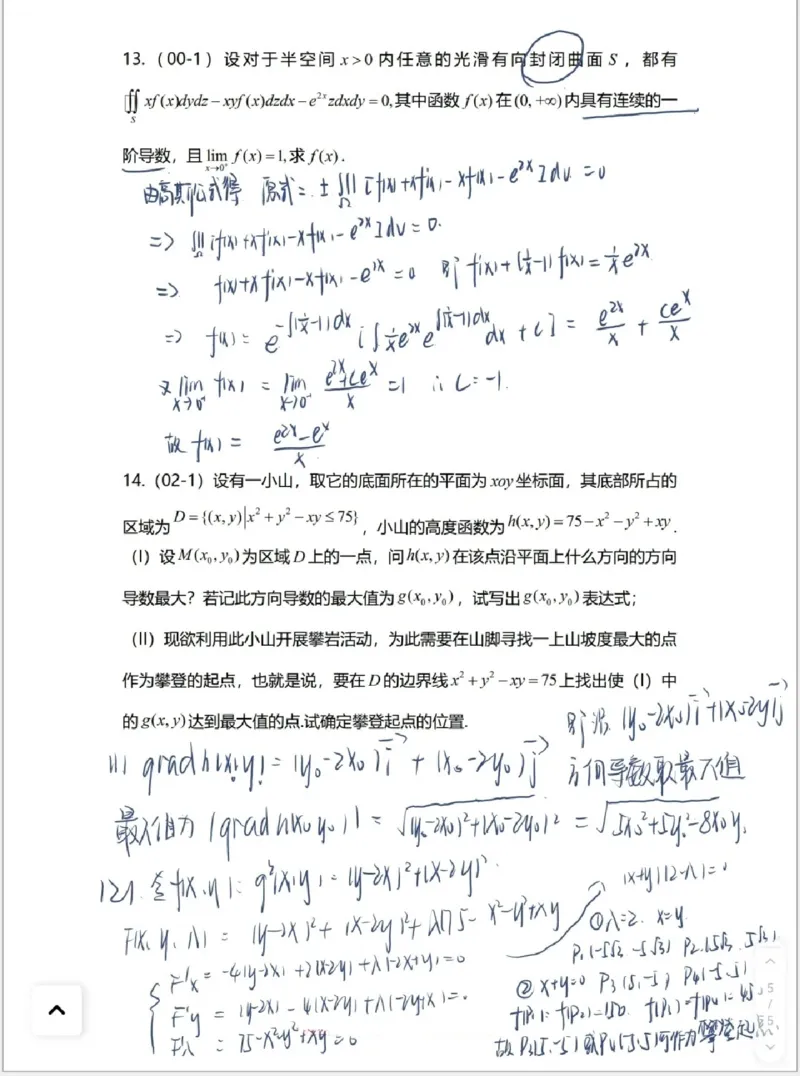 13.（00-1）设对于半空间 x>0 内任意的光滑有向封闭曲面 S，都有
∬_S xf(x)dydz−xyf(x)dzdx−e^{2x}zdxdy=0,其中函数 f(x) 在(0,+∞)内具有连续的一
阶导数，且 lim_{x→0⁺} f(x)=1,求 f(x).
由高斯公式得 原式=±∭_Ω [f(x)+xf'(x)−xf(x)−e^{2x}]dv=0
=> ∭_Ω [f(x)+xf'(x)−xf(x)−e^{2x}]dv=0.
=> f(x)+xf'(x)−xf(x)−e^{2x}=0 即 f'(x)+(1/x−1)f(x)=1/x e^{2x}
=> f(x)=e^{−∫(1/x−1)dx}[∫1/x e^{2x}e^{∫(1/x−1)dx}dx+C]=e^{2x}/x+Ce^x/x
又 lim_{x→0⁺} f(x)=lim_{x→0⁺} (e^{2x}+Ce^x)/x=1 ∴C=−1.
故 f(x)=(e^{2x}−e^x)/x
14.（02-1）设有一小山，取它的底面所在的平面为 xoy 坐标面，其底部所占的
区域为 D={(x,y)|x²+y²−xy≤75}，小山的高度函数为 h(x,y)=75−x²−y²+xy.
（I）设 M(x₀,y₀)为区域 D 上的一点，问 h(x,y) 在该点沿平面上什么方向的方向
导数最大？若记此方向导数的最大值为 g(x₀,y₀)，试写出 g(x₀,y₀) 表达式；
（II）现欲利用此小山开展攀岩活动，为此需要在山脚寻找一上山坡度最大的点
作为攀登的起点，也就是说，要在 D 的边界线 x²+y²−xy=75 上找出使（I）中
的 g(x,y) 达到最大值的点.试确定攀登起点的位置.
即沿 (y₀−2x₀)i+(x₀−2y₀)j
(1) grad h(x,y)=(y₀−2x₀)i+(x₀−2y₀)j 方向导数取最大值
最大值为 |grad h(x₀,y₀)|=√((y₀−2x₀)²+(x₀−2y₀)²)=√(5x₀²+5y₀²−8x₀y₀)
(2). 令f(x,y)=g²(x,y)=(y−2x)²+(x−2y)².
(x+y)(2−λ)=0
F(x,y,λ)=(y−2x)²+(x−2y)²+λ(75−x²−y²+xy)
①λ=2. x=y.
P₁(−5√3,−5√3) P₂(5√3,5√3)
F'x=−4(y−2x)+2(x−2y)+λ(−2x+y)=0
②x+y=0 P₃(5,−5) P₄(−5,5)
F'y=2(y−2x)−4(x−2y)+λ(−2y+x)=0.
f(P₁)=f(P₂)=150. f(P₃)=f(P₄)=450
F'λ=75−x²−y²+xy=0
故P₃(5,−5)或P₄(−5,5)可作为攀登起点
5
/
5